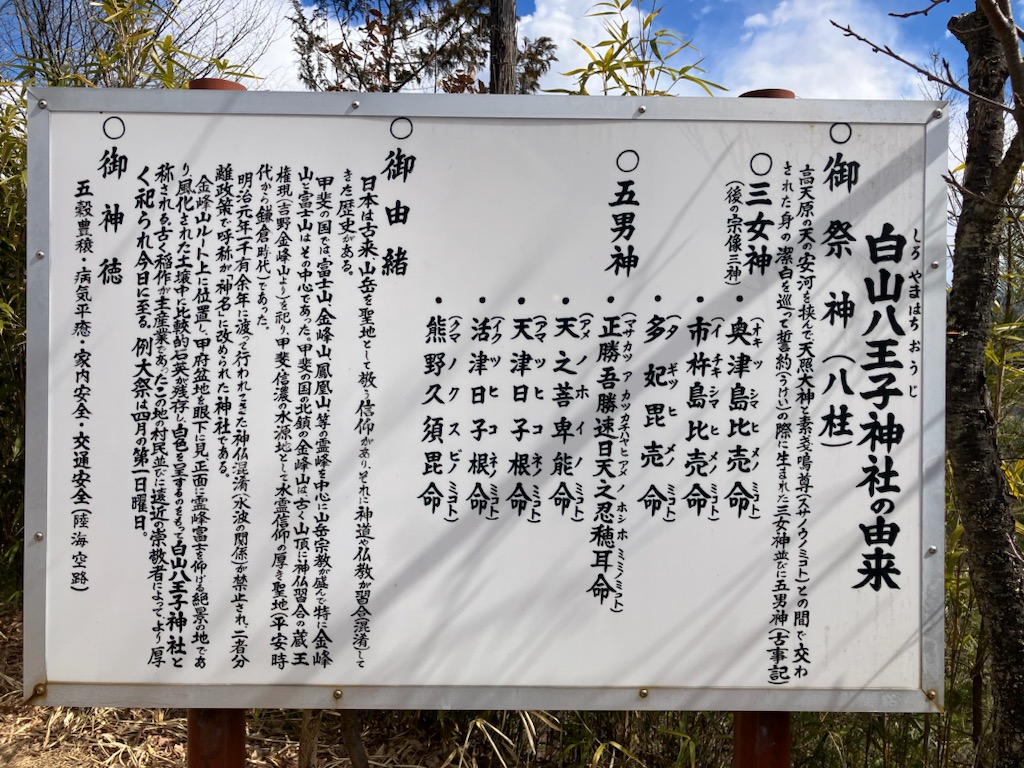 白山八王子神社の由来
しろやまはちおうじ
○御祭神(八柱)
高天原の天の安河を挟んで天照大神と素戔鳴尊(スサノウノミコト)との間で交わ
された身の潔白を巡って誓約(うけい)の際に生まれた三女神並びに五男神(古事記)
○三女神
(後の宗像三神)
・奥津島比売命
(オキツシマヒメノミコト)
・市杵島比売命
(イチキシマヒメノミコト)
・多妃毘売命
(タギツヒメノミコト)
○五男神
・正勝吾勝速日天之忍穂耳命
(マサカツアカツカチハヤヒアメノホシホミミノミコト)
・天之菩卑能命
(アメノホヒイノミコト)
・天津日子根命
(アマツヒコネノミコト)
・活津日子根命
(イクツヒコネノミコト)
・熊野久須毘命
(クマノクスビノミコト)
○御由緒
日本は古来山岳を聖地として敬う信仰があり、それに神道や仏教が習合(混淆)して
きた歴史がある。
甲斐の国では、富士山、金峰山、鳳凰山等の霊峰を中心に山岳宗教が盛んで特に金峰
山と富士山はその中心であった。甲斐の国の北鎮の金峰山は、古く山頂に神仏習合の蔵王
権現(吉野金峰山より)を祀り、甲斐・信濃の水源地として水霊信仰の厚き聖地(平安時
代から鎌倉時代)であった。
明治元年、一千有余年に渡って行われてきた神仏混淆(水波の関係)が禁止され、二者分
離政策で呼称が「神名」に改められた神社である。
金峰山ルート上に位置し、甲府盆地を眼下に見、正面に霊峰富士を仰げる絶景の地であ
り、風化された土壌中に比較的石英が残存し白色を呈するのをもって白山八王子神社と
称される。古く稲作が主産業であったこの地の村民並びに遠近の崇敬者によって、より厚
く祀られ今日に至る。例大祭は四月の第一日曜日。
○御神徳
五穀豊穣・病気平癒・家内安全・交通安全(陸海空路)